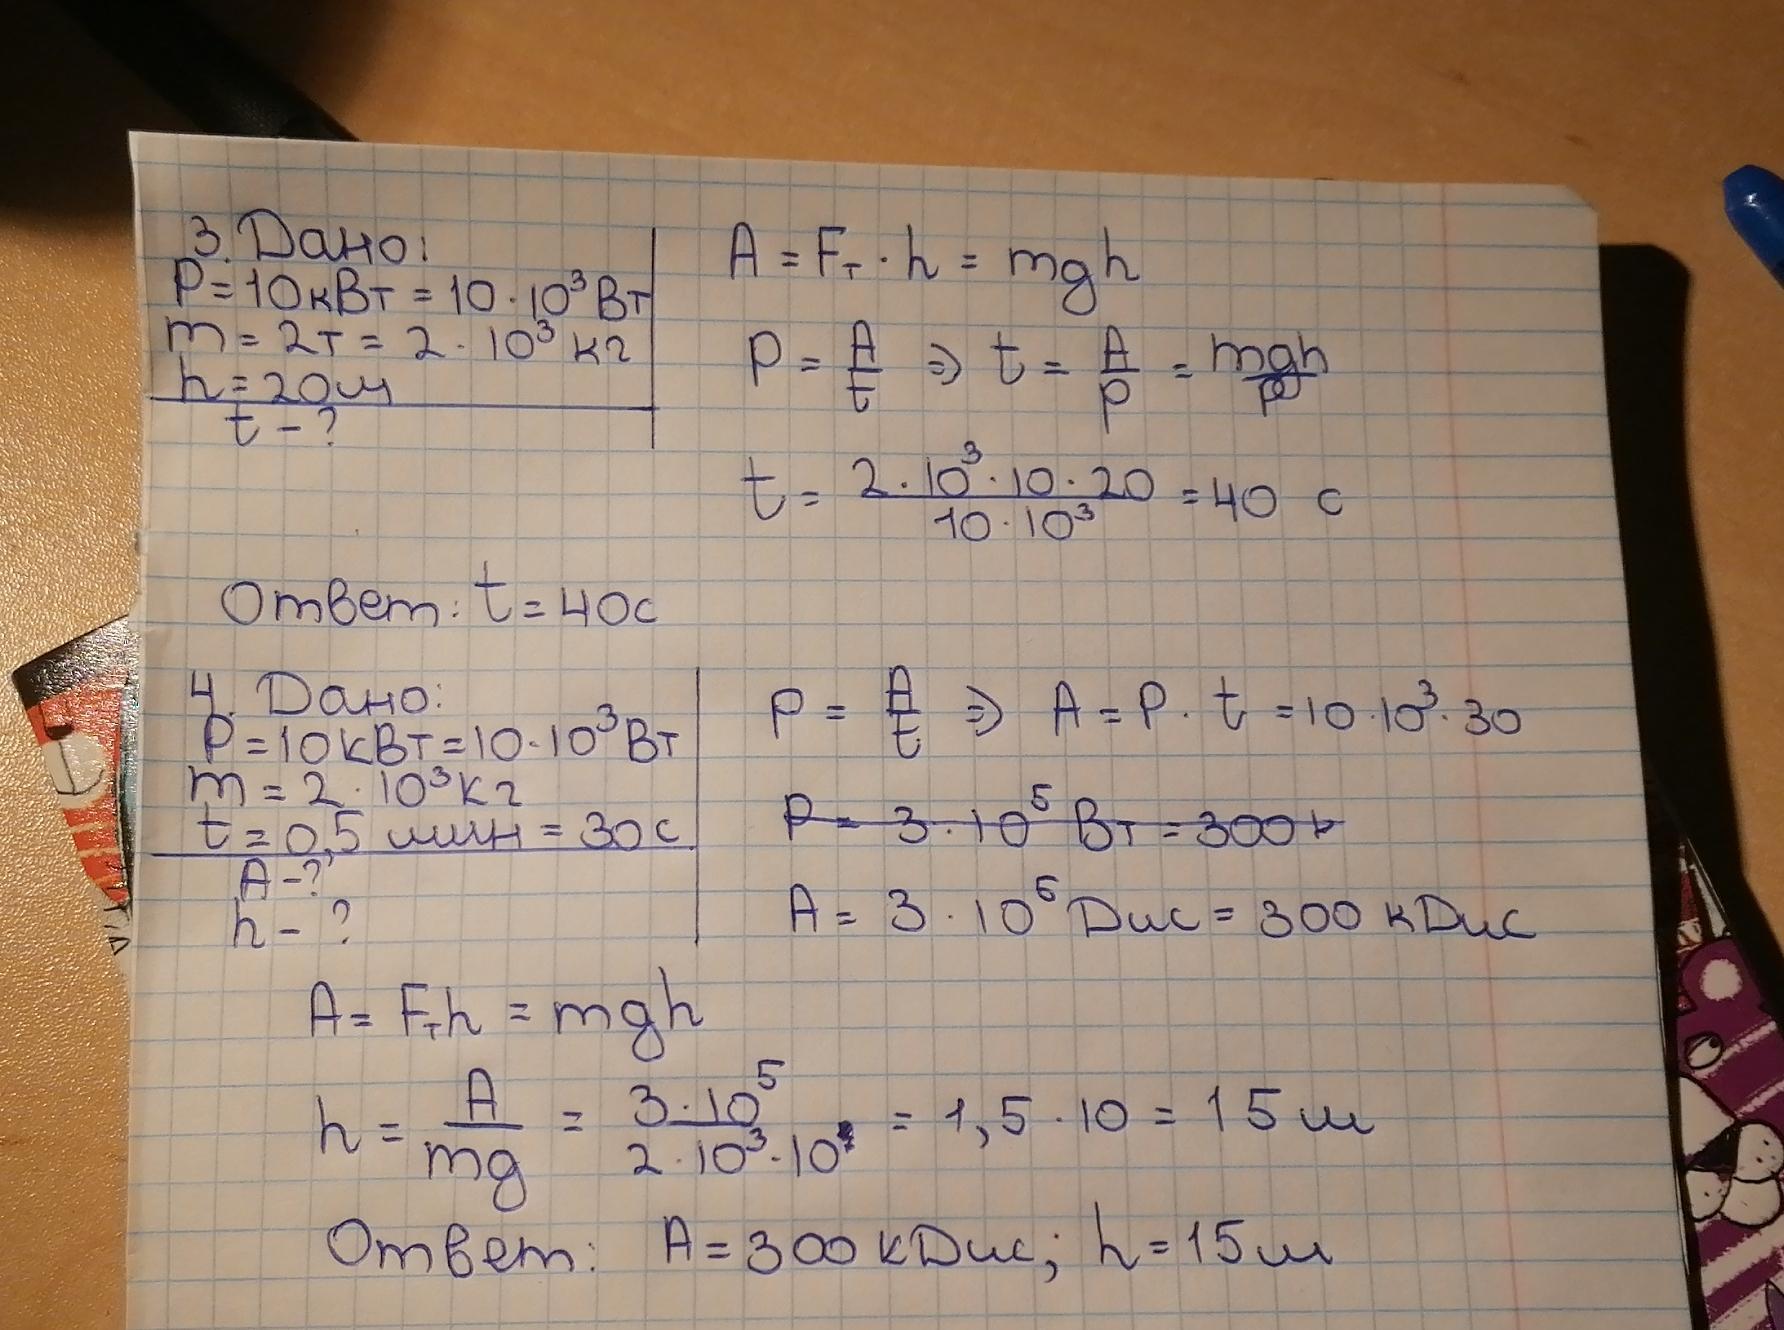 3. Дано:
P = 10 кВт = 10 · 10³ Вт
m = 2т = 2 · 10³ кг
h = 20м
t - ?
A = Fт · h = mgh
P = A/t ⇒ t = A/P = mgh/P
t = 2 · 10³ · 10 · 20 / 10 · 10³ = 40 с
Ответ: t = 40с
4. Дано:
P = 10 кВт = 10 · 10³ Вт
m = 2 · 10³ кг
t = 0,5 мин = 30 с
A - ?
h - ?
P = A/t ⇒ A = P · t = 10 · 10³ · 30
P = 3 · 10⁵ Вт = 300 к
A = 3 · 10⁵ Дж = 300 кДж
A = Fтh = mgh
h = A/mg = 3 · 10⁵ / 2 · 10³ · 10 = 1,5 · 10 = 15 м
Ответ: A = 300 кДж; h = 15 м